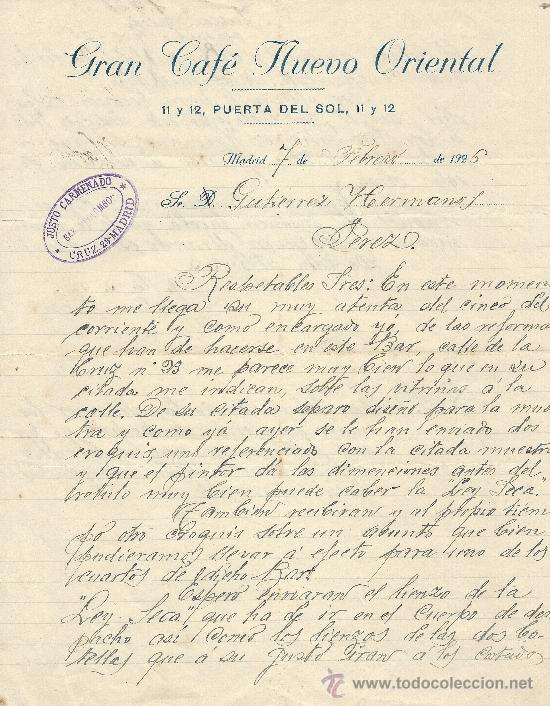 Gran Café Nuevo Oriental
11 y 12, PUERTA DEL SOL, 11 y 12
Madrid 7 de Febrero de 1926
JUSTO CARMENADO
CRUZ, 23-MADRID
Sr. D. Gutierrez Hermanos
Perez.
Respetables Sres: En este momen
to me llega su muy atenta del cinco del
corriente y como encargado yó, de las reforma
que han de hacerse en este Bar, calle de la
Cruz nº 23 me parece muy bien lo que en su
citada me indican, sobre las vitrinas á la
calle. De su citada saparo diseño para la mues
tra y como yá ayer se le han enviado dos
croquis, uno referenciado con la citada muestra
y que el pintor dá las dimenciones antes del
rotulo muy bien puede caber la "Ley Seca."
Tambien recibiran y al propio tiem
po otro Croquis sobre un asunto que bien
pudieramos llevar á efecto para uno de los
cuartos de dicho Bar.
Espero enviaran el lienzo de la
"Ley Seca" que ha de ir en el Cuerpo de des
pacho asi como los lienzos de las dos bo
tellas que a su justo iran á los costados
www.todocoleccion.net